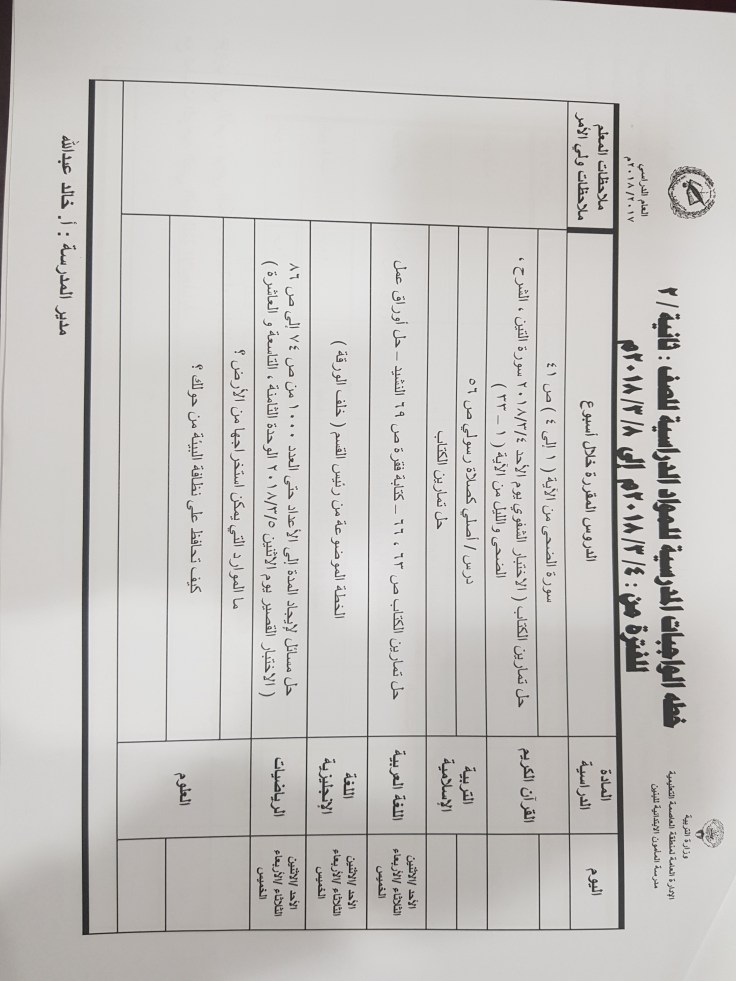 وزارة التربية
الإدارة العامة لمنطقة العاصمة التعليمية
مدرسة المأمون الابتدائية للبنين
خطه الواجبات المدرسية للمواد الدراسية للصف : ثانية / ٢
للفترة من : ٢٠١٨/٣/٤م إلى ٢٠١٨/٣/٨م
العام الدراسي
٢٠١٨/٢٠١٧م
اليوم
المادة الدراسية
الدروس المقررة خلال أسبوع
ملاحظات المعلم
ملاحظات ولي الأمر
القرآن الكريم
سورة الضحى من الآية ( ١ إلى ٤ ) ص ٤١
حل تمارين الكتاب ( الاختبار الشفوي يوم الأحد ٢٠١٨/٣/٤ سورة التين ، الشرح ،
الضحى والليل من الآية ( ١ – ٣٣ )
التربية الإسلامية
درس / أصلي كصلاة رسولي ص ٥٦
حل تمارين الكتاب
الأحد /الاثنين
الثلاثاء /الأربعاء
الخميس
اللغة العربية
حل تمارين الكتاب ص ٦٣ ، ٦٦ – كتابة فقرة ص ٦٩ النشيد – حل أوراق عمل
الأحد /الاثنين
الثلاثاء /الأربعاء
الخميس
اللغة الإنجليزية
الخطة الموضوعة من رئيس القسم ( خلف الورقة )
الأحد /الاثنين
الثلاثاء /الأربعاء
الخميس
الرياضيات
حل مسائل لإيجاد المدة إلى الأعداد حتى العدد ١٠٠٠ من ص ٧٤ إلى ص ٨٦
( الاختبار القصير يوم الاثنين ٢٠١٨/٣/٥ الوحدة الثامنة ، التاسعة و العاشرة )
العلوم
ما الموارد التي يمكن استخراجها من الأرض ؟
كيف تحافظ على نظافة البيئة من حولك ؟
مدير المدرسة : أ. خالد عبدالله